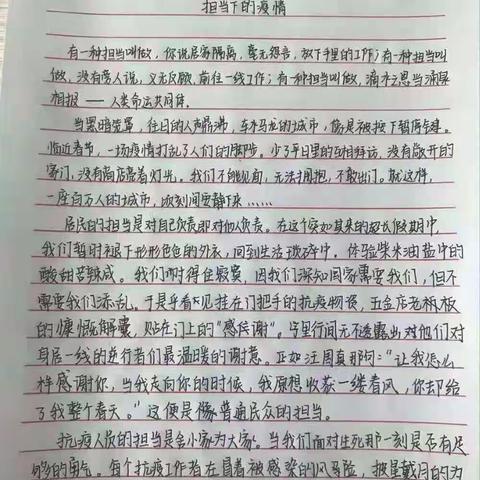 担当下的疫情
有一种担当叫做,你说居家隔离,毫无怨言,放下手里的工作;有一种担当叫
做,没有旁人说,义无反顾,前往一线工作;有一种担当叫做,滴水之恩当涌泉
相报——人类命运共同体。
当黑暗笼罩,往日的人声鼎沸,车水马龙的城市,像是被按下暂停键。
临近春节,一场疫情打乱了人们的脚步。少了平日里的互相拜访,没有敞开的
寨门,没有商店亮着灯出。我们不能见面,无法拥抱,不敢出门。就这样,
一座百万人的城市,顷刻间安静下来……
居民的担当是对自己负责即对他人负责。在这个突如其来的超长假期中,
我们暂时褪下形形色色的外衣,回到生活琐碎中,体验柴米油盐中的
酸甜苦辣咸。我们耐得住寂寞,因我们深知国家需要我们,但不
需要我们添乱。于是乎看见挂在门把手的抗疫物资,五金店老板
的慷慨解囊,贴在门上的“感谢”。字里行间无不透露出对他们对
身居一线的逆行者们最温暖的谢意。正如汪国真那句:“让我怎么
样感谢你,当我走向你的时候,我原想收获一缕春风,你却给
了我整个春天。”这便是像普通民众的担当。
抗疫人员的担当是舍小家为大家。当我们面对生死那一刻是否有足
够的勇气。每个抗疫工作者在冒着被感染的风险,披星戴月的为